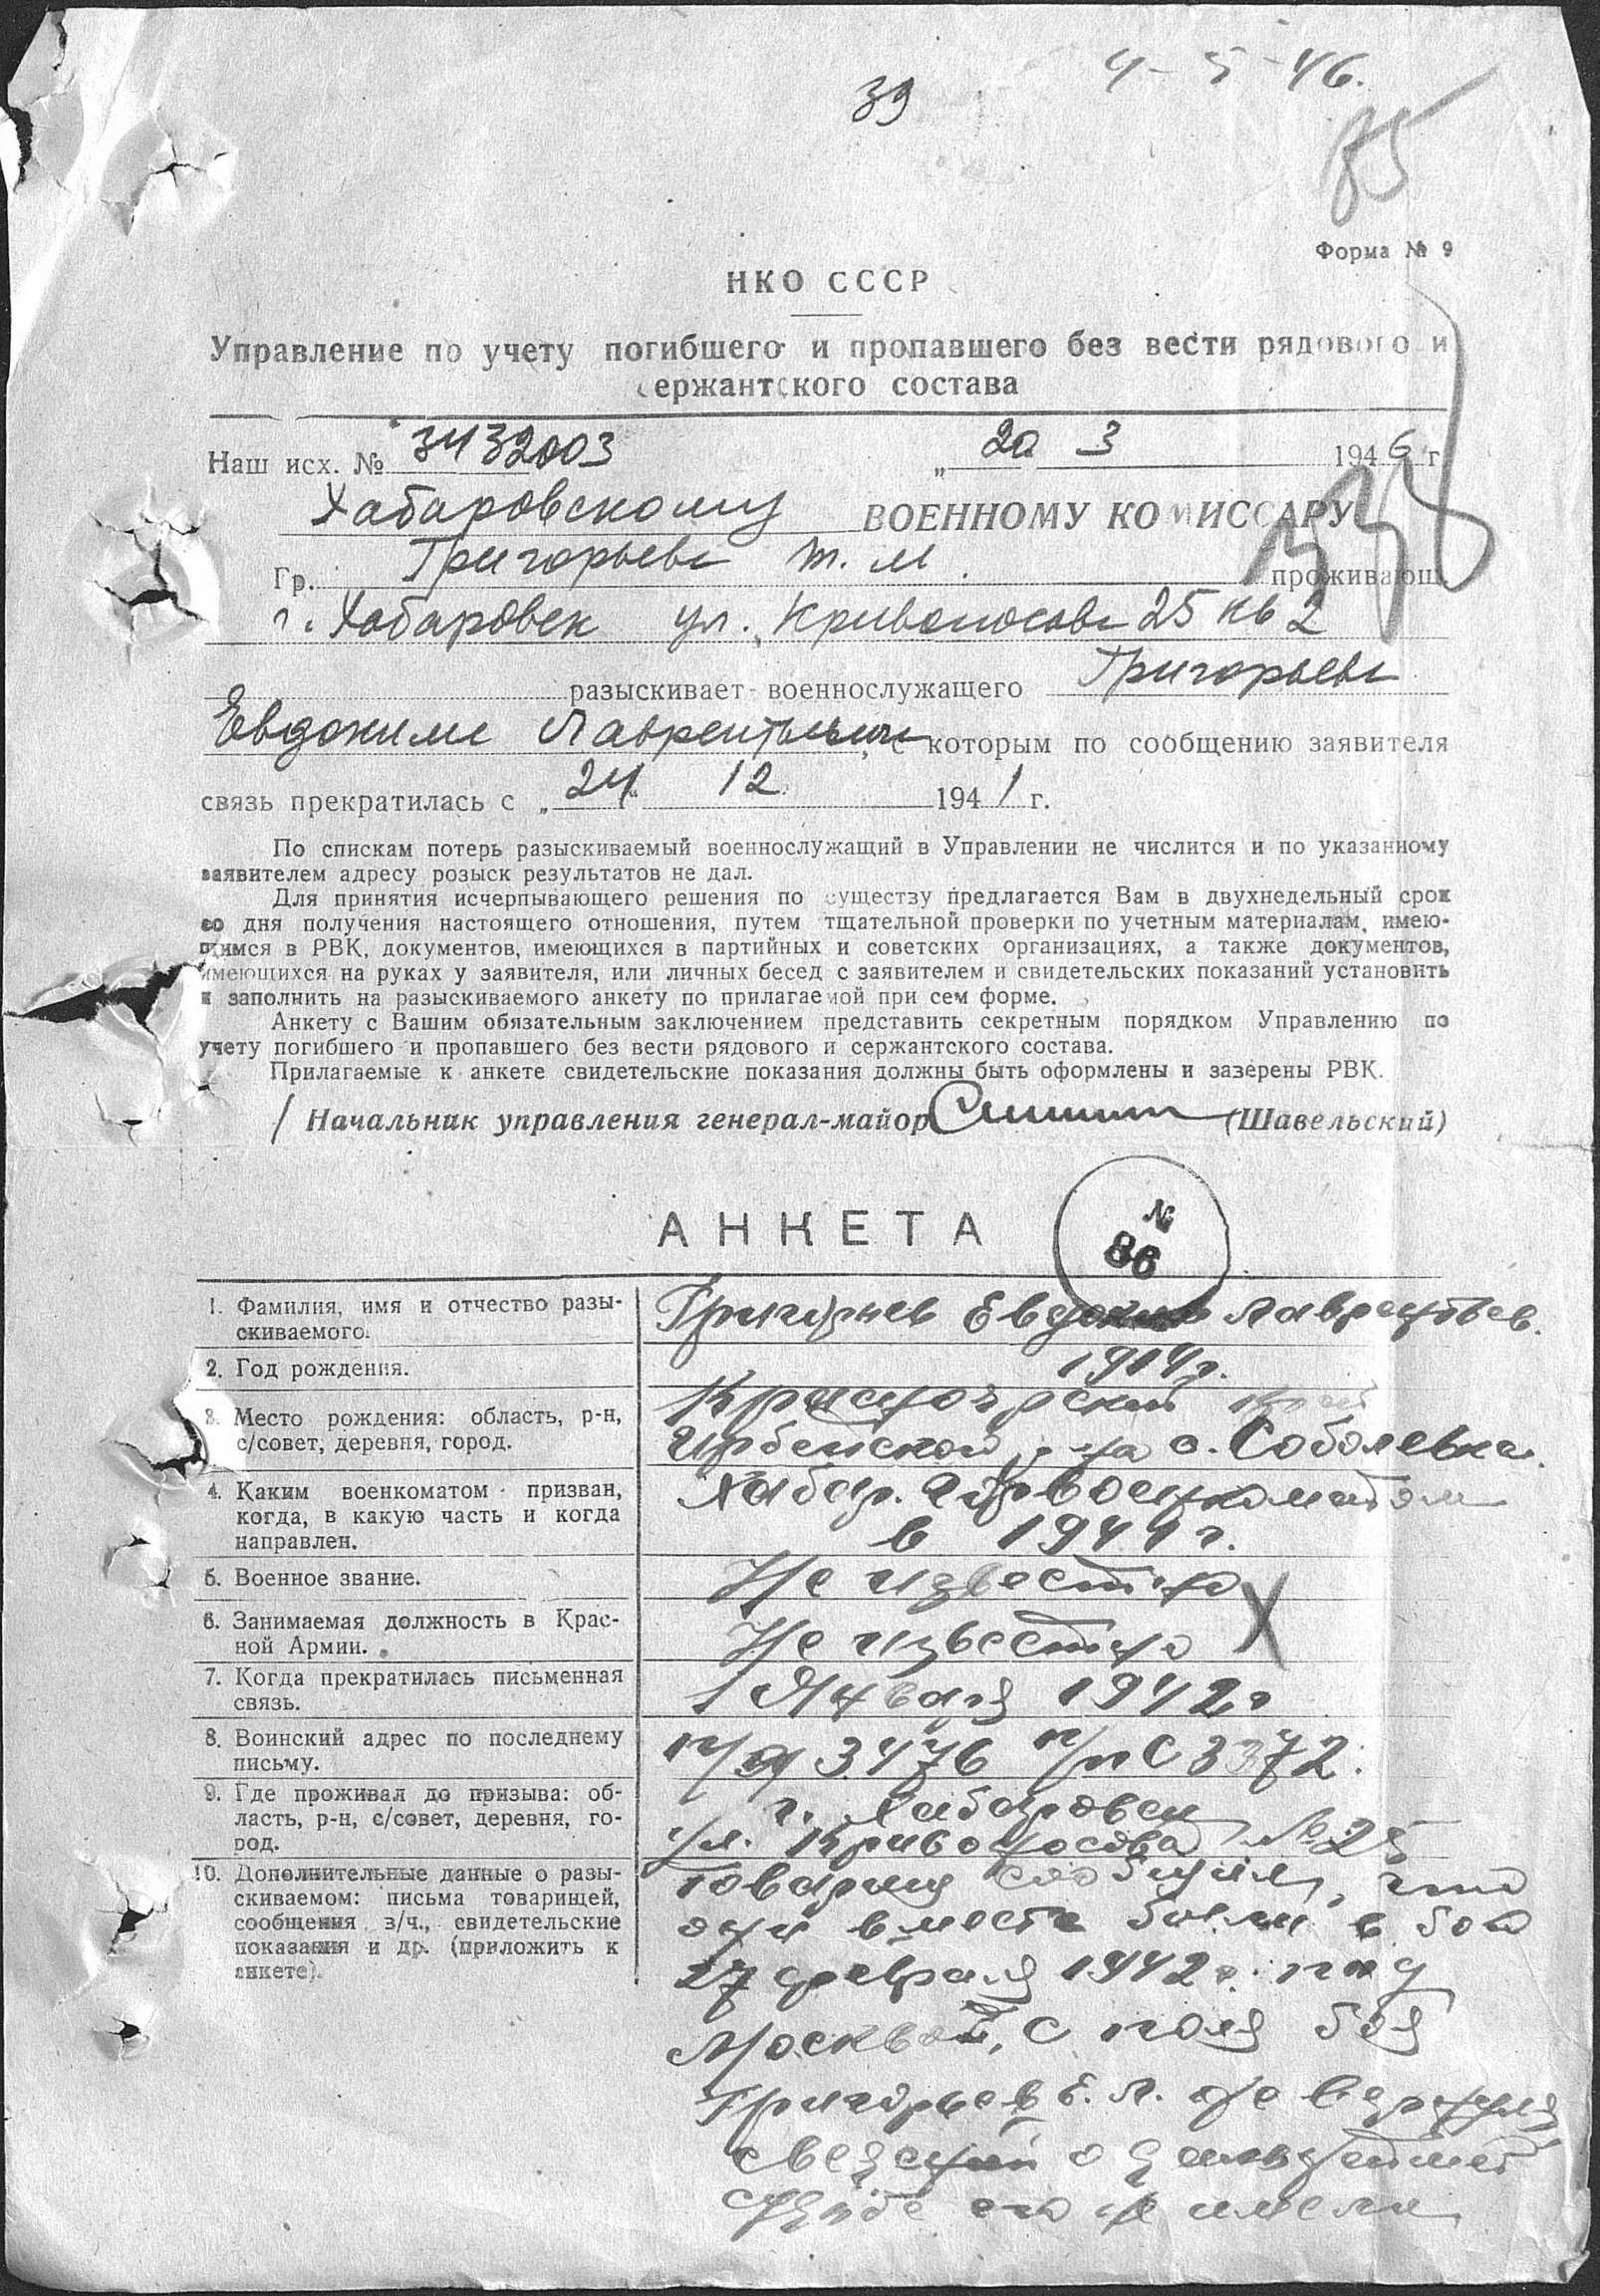 4-5-46.
39
85
Форма № 9
НКО СССР
Управление по учету погибшего и пропавшего без вести рядового и
сержантского состава
Наш исх. № 3432003 „20 3 1946 г
Хабаровскому ВОЕННОМУ КОМИССАРУ
Гр. Григорьева Т. М. проживающ.
г. Хабаровск ул. Кривоносова 25 кв 2
разыскивает военнослужащего Григорьева
Евдокима Лаврентьевича, с которым по сообщению заявителя
связь прекратилась с „24" 12 1941 г.
По спискам потерь разыскиваемый военнослужащий в Управлении не числится и по указанному
заявителем адресу розыск результатов не дал.
Для принятия исчерпывающего решения по существу предлагается Вам в двухнедельный срок
со дня получения настоящего отношения, путем тщательной проверки по учетным материалам, имею-
щимся в РВК, документов, имеющихся в партийных и советских организациях, а также документов,
имеющихся на руках у заявителя, или личных бесед с заявителем и свидетельских показаний установить
и заполнить на разыскиваемого анкету по прилагаемой при сем форме.
Анкету с Вашим обязательным заключением представить секретным порядком Управлению по
учету погибшего и пропавшего без вести рядового и сержантского состава.
Прилагаемые к анкете свидетельские показания должны быть оформлены и заверены РВК.
Начальник управления генерал-майор (Шавельский)
АНКЕТА
№
86
1. Фамилия, имя и отчество разы-
скиваемого.
Григорьев Евдоким Лаврентьев.
2. Год рождения.
1914 г.
3. Место рождения: область, р-н,
с/совет, деревня, город.
Красноярский край
Ирбейской р-на с. Соболевка.
4. Каким военкоматом призван,
когда, в какую часть и когда
направлен.
Хабар. Горвоенкоматом
в 1941 г.
5. Военное звание.
Не известно
6. Занимаемая должность в Крас-
ной Армии.
Не известно
7. Когда прекратилась письменная
связь.
1 Января 1942 г
8. Воинский адрес по последнему
письму.
п/я 3476 п/п С 3372.
9. Где проживал до призыва: об-
ласть, р-н, с/совет, деревня, го-
род.
г. Хабаровск
ул. Кривоносова №25
10. Дополнительные данные о разы-
скиваемом: письма товарищей,
сообщения з/ч., свидетельские
показания и др. (приложить к
анкете).
Товарищ сообщил, что
они вместе были в бою
27 февраля 1942 г. под
Москвой, с поля боя
Григорьев Е. Л. не вернулся,
сведений о дальнейшей
судьбе его не имели